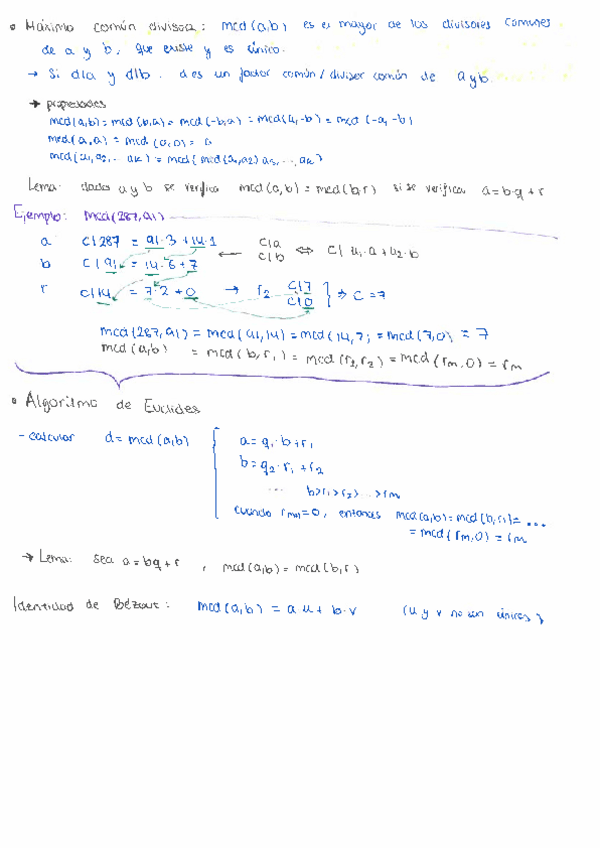 • Máximo común divisor: mcd(a,b) es el mayor de los divisores comunes
de a y b, que existe y es único.
→ Si d|a y d|b. d es un factor común/divisor común de a y b.
→ propiedades
mcd(a,b) = mcd(b,a) = mcd(-b,a) = mcd(a,-b) = mcd(-a,-b)
mcd(a,a) = mcd(a,0) = a
mcd(a1,a2,...ak) = mcd(mcd(a1,a2)a3,...,ak)
Lema: dados a y b se verifica mcd(a,b) = mcd(b,r) si se verifica a=b·q+r
Ejemplo: mcd(287,91)
a c|287 = 91·3 + 14·1
c|a
c|b ⇔ c| u1·a + u2·b
b c|91 = 14·6 + 7
r c|14 = 7·2 + 0 → r2 c|7
c|0 } ⇒ c=7
mcd(287,91) = mcd(91,14) = mcd(14,7) = mcd(7,0) = 7
mcd(a,b) = mcd(b,r1) = mcd(r1,r2) = mcd(rm,0) = rm
• Algoritmo de Euclides
- calcular d = mcd(a,b)
a = q1·b + r1
b = q2·r1 + r2
... b>r1>r2>...>rm
cuando rm+1=0, entonces mcd(a,b)=mcd(b,r1)= ...
= mcd(rm,0) = rm
→ Lema: sea a = bq + r , mcd(a,b) = mcd(b,r)
Identidad de Bézout: mcd(a,b) = a u + b·v (u y v no son únicos)